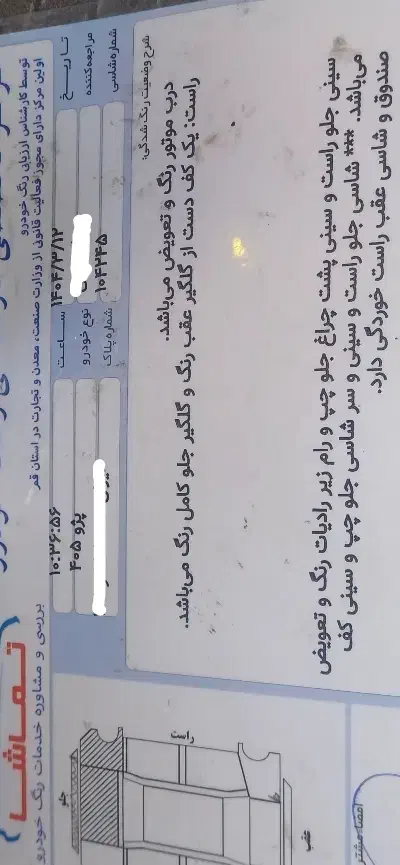 تماشا
بررسی و مشاوره خدمات رنگ خودرو
توسط کارشناس ارزیابی رنگ خودرو
اولین مرکز دارای مجوز فعالیت قانونی از وزارت صنعت، معدن و تجارت در استان قم
تاریخ ۱۴۰۴/۳/۱۲ ساعت ۱۰:۳۶:۵۶
مراجعه کننده نوع خودرو پژو ۴۰۵
شماره شاسی ۱۰۴۲۴۵ شماره پلاک
شرح وضعیت رنگ شدگی:
راست: یک کف دست از گلگیر عقب رنگ و گلگیر جلو کامل رنگ می‌باشد.
درب موتور رنگ و تعویض می‌باشد.
سینی جلو راست و سینی پشت چراغ جلو چپ و رام زیر رادیات رنگ و تعویض
می‌باشد. *** شاسی جلو راست و سینی و سر شاسی جلو چپ و سینی کف
صندوق و شاسی عقب راست خوردگی دارد.
راست
جلو
عقب
امضاء مشتری